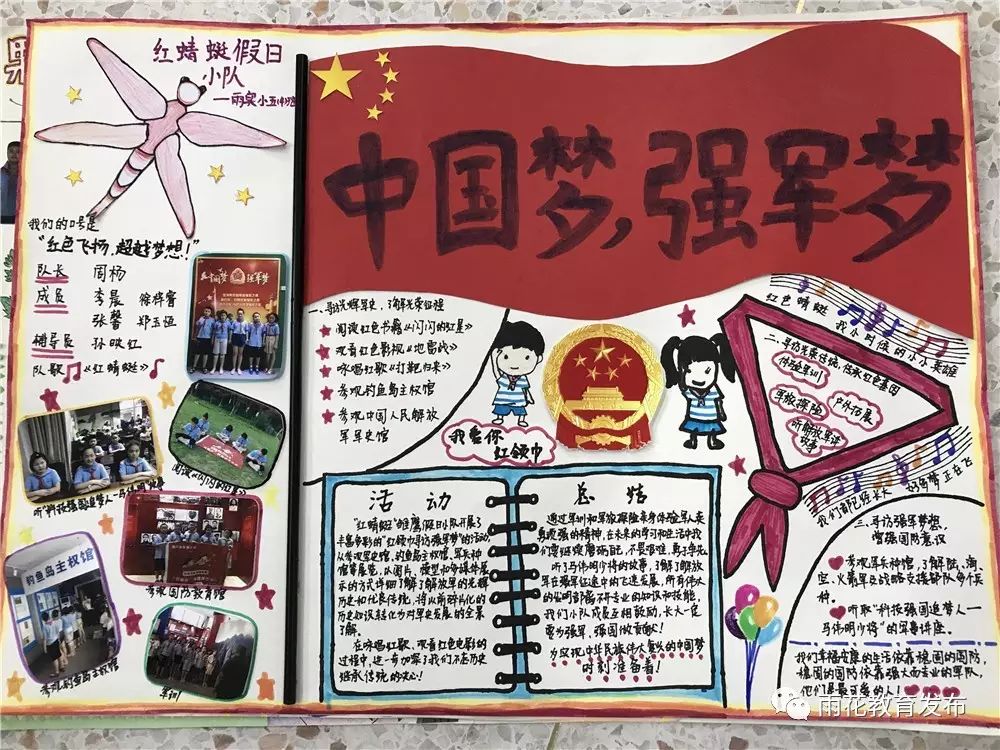 红蜻蜓假日
小队
我们的口号是
"红色飞扬,超越梦想!"
队长 周杨
成员 李晨 徐梓睿
张馨 郑玉恒
辅导员 孙映红
队歌 《红蜻蜓》
强军梦
阅读《闪闪的红星》
参观国防教育馆
钓鱼岛主权馆
参观钓鱼岛主权馆
军训
中国梦,强军梦
一、寻访光辉军史,了解光荣征程
阅读红色书籍《闪闪的红星》
观看红色影视《地雷战》
咏唱红歌《打靶归来》
参观钓鱼岛主权馆
参观中国人民解放
军军史馆
我爱你
红领巾
红色蜻蜓
我小时候的小小英雄
二、寻访光荣传统,传承红色基因
体验军训
军旅探险
户外拓展
听解放军讲
故事
我们都已经长大 好多梦正在飞
活动
"红蜻蜓"雏鹰假日小队开展了
丰富多彩的"红领巾寻访强军梦"的活动
从参观军史馆,钓鱼岛主权馆,军兵种
馆等展览,以图片、模型和多媒体展
示的方式详细了解了解放军的光辉
历史和优良传统,将从前碎片化的
历史知识转化为对军史发展的全景
了解。
在咏唱红歌、观看红色电影的
过程中,进一步加深了我们不忘历史
继承传统的决心!
总结
通过军训和军旅探险亲身体验军人英
勇顽强的精神,在未来的学习和生活中我
们要继续磨砺自己,不畏艰难,勇于争先
听了马伟明少将的故事,了解了解放
军在强军征途中的飞速发展,所有伟大
的发明都离不开专业的知识和技能,
我们小队成员互相鼓励,长大一定
要为强军、强国做贡献!
为实现中华民族伟大复兴的中国梦
时刻准备着!
三、寻访强军梦想,
增强国防意识
参观军兵种馆,了解陆、海、
空、火箭军及战略支援部队多个兵
种。
听取"科技强国追梦人——
马伟明少将"的军事讲座。
我们幸福安康的生活依靠稳固的国防,
稳固的国防依靠强大而专业的军队,
他们是最可爱的人!
雨花教育发布